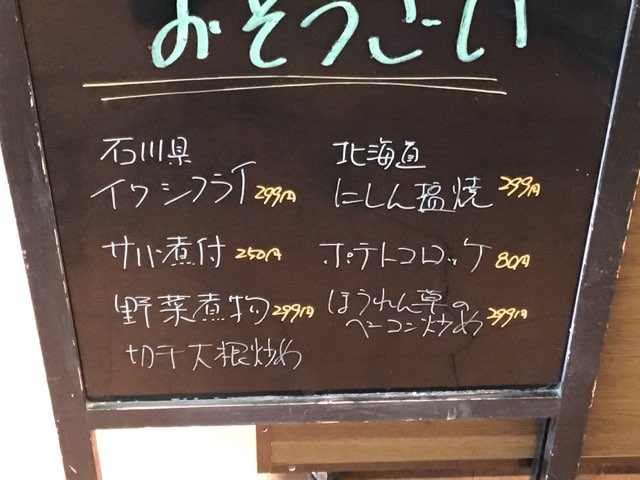 おそうざい
石川県
イワシフライ 299円
サバ煮付 250円
野菜煮物 299円
切干大根炒め
北海道
にしん塩焼 299円
ポテトコロッケ 80円
ほうれん草の
ベーコン炒め 299円